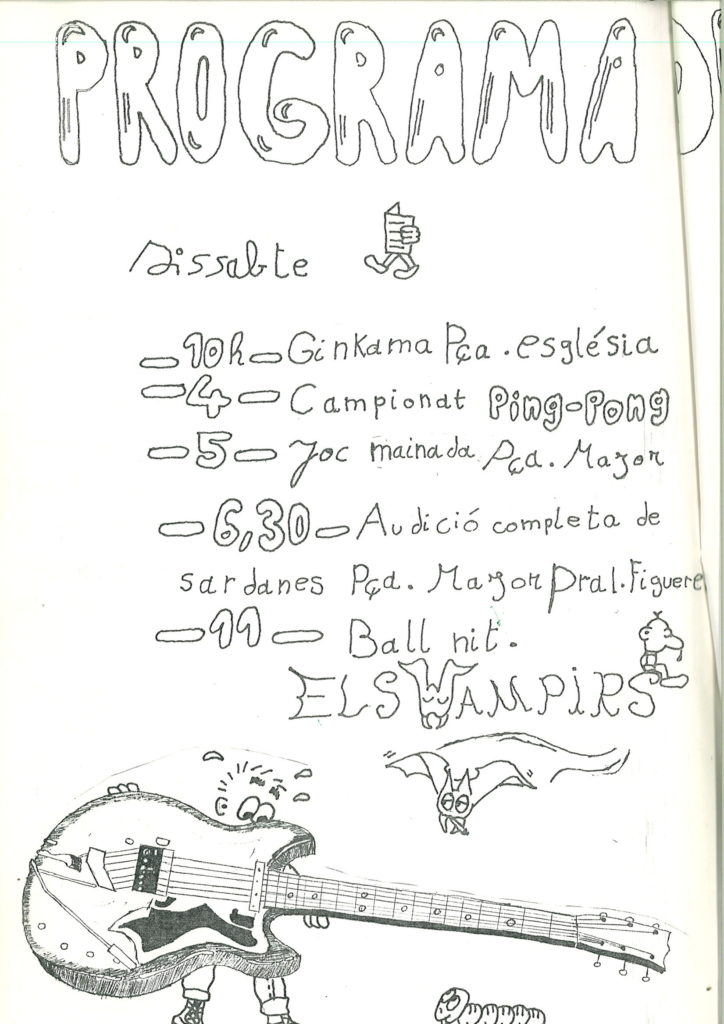 PROGRAMA
Dissabte
-10h-Ginkama Pça. església
-4- Campionat Ping-Pong
-5- Joc mainada Pça. Major
-6,30-Audició completa de
sardanes Pça. Major Pral. Figuere
-11- Ball nit.
ELS VAMPIRS